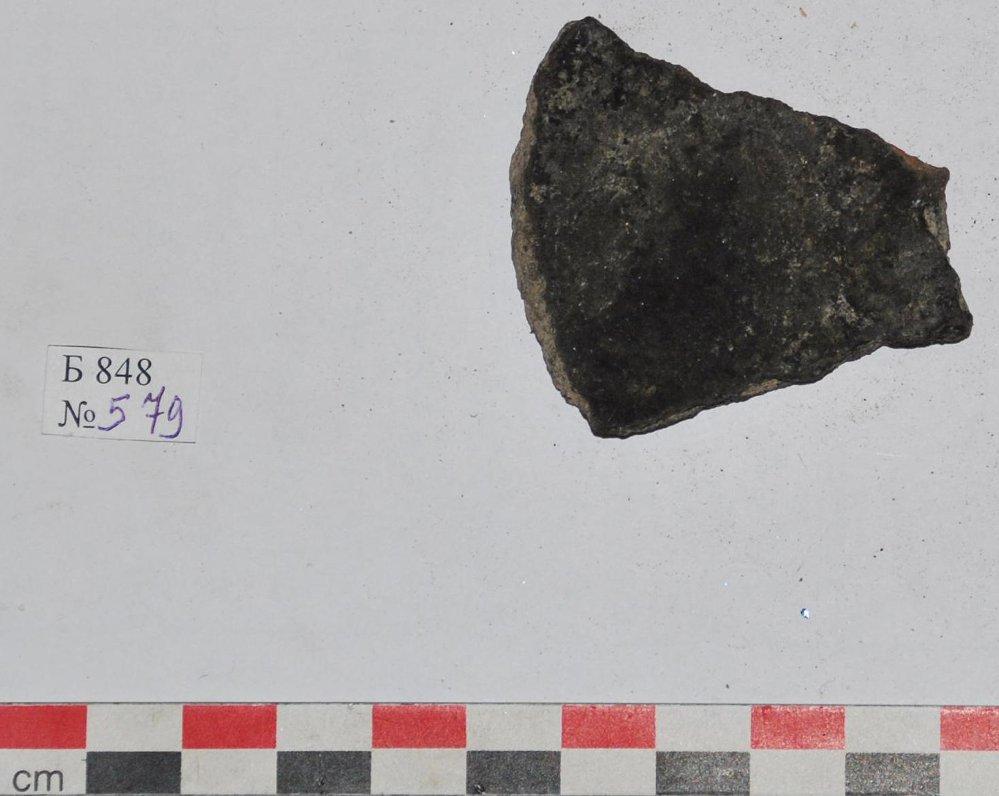 Б 848
№579
cm